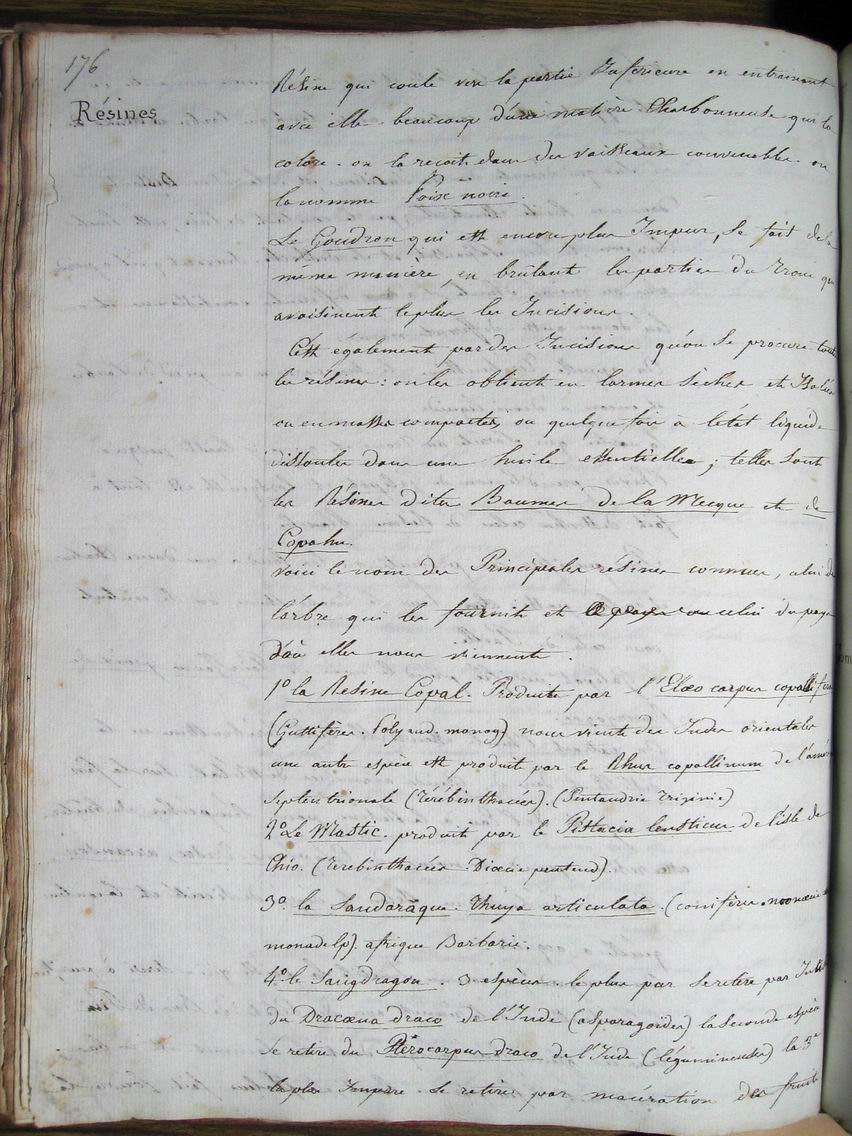 176
Résines
Résine qui coule vers la partie Inférieure en entrainant
avec elle beaucoup d'une matière Charbonneuse qui la
colore. on la recoit dans des vaisseaux convenables. on
la nomme Poix noire.
Le Goudron qui est encore plus Impur, se fait de la
même manière, en brûlant les parties du tronc qui
avoisinent le plus les Incisions.
C'est également par des Incisions qu'on se procure toutes
les résines: on les obtient en larmes sèches et Isolées
ou en masses compactes, ou quelque fois à l'état liquide
dissoutes dans une huile essentielle; telles sont
les Résines dites Baumes de la Mecque et de
Copahu.
Voici le nom des Principales résines connues, celui de
l'arbre qui les fournit et celui du pays
d'où elles nous viennent.
1º la Résine Copal. Produite par l'Elæocarpus copallifera
(Guttifères. Polyand. monog) nous vient des Indes orientales
une autre espèce est produit par le Rhus copallinum de l'amér
septentrionale (Térébinthacées). (Pentandrie Triginie)
2º Le Mastic. produit par le Pistacia lentiscus de l'isle de
Chio. (Terebinthacées Dioecie pentand).
3º. la Sandaraque. Thuya articulata. (conifères. monoecie
monadelp). afrique Barbarie.
4º. le Sangdragon. 3 espèces. le plus pur se retire par Incis
du Dracæna draco de l'Inde (asparagoïdes) la seconde espèce
se retire du Ptérocarpus draco de l'Inde (légumineuses) la 3e
la plus Impure. se retire par macération des fruits